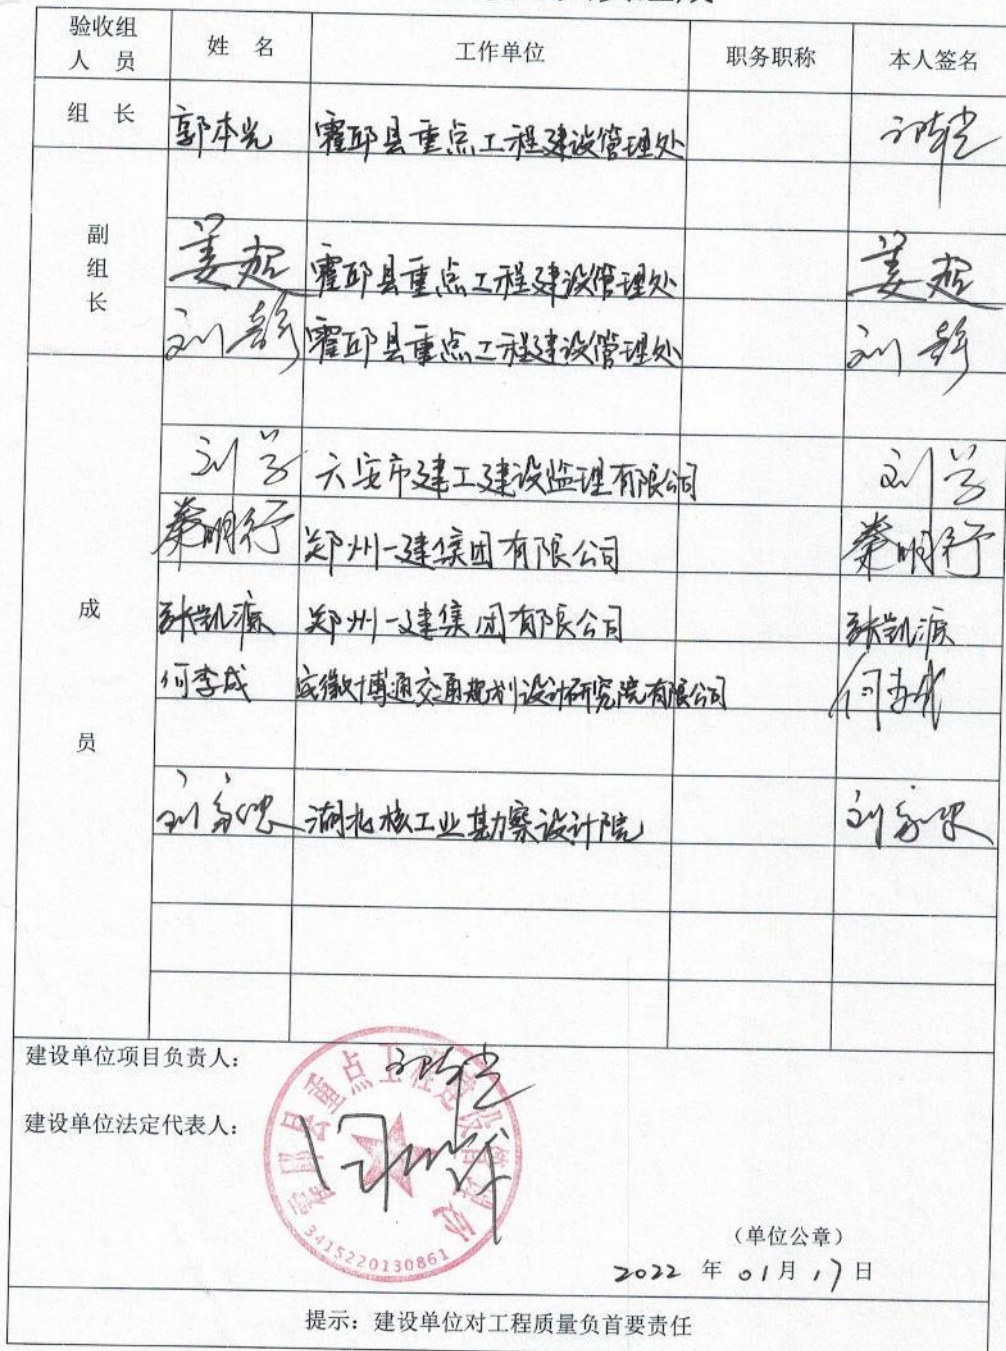 验收组
人 员
姓 名
工作单位
职务职称
本人签名
组 长
郭本光 霍邱县重点工程建设管理处
副
组
长
姜超 霍邱县重点工程建设管理处 姜超
刘彭 霍邱县重点工程建设管理处 刘彭
成
员
刘 六安市建工建设监理有限公司 刘
秦明行 郑州一建集团有限公司 秦明行
张凯源 郑州一建集团有限公司 张凯源
何李成 安徽博通交通规划设计研究院有限公司 何李成
刘 湖北核工业勘察设计院 刘
建设单位项目负责人：
建设单位法定代表人：
霍邱县重点工程建设管理处
3415220130861
（单位公章）
2022 年 01月 17日
提示：建设单位对工程质量负首要责任